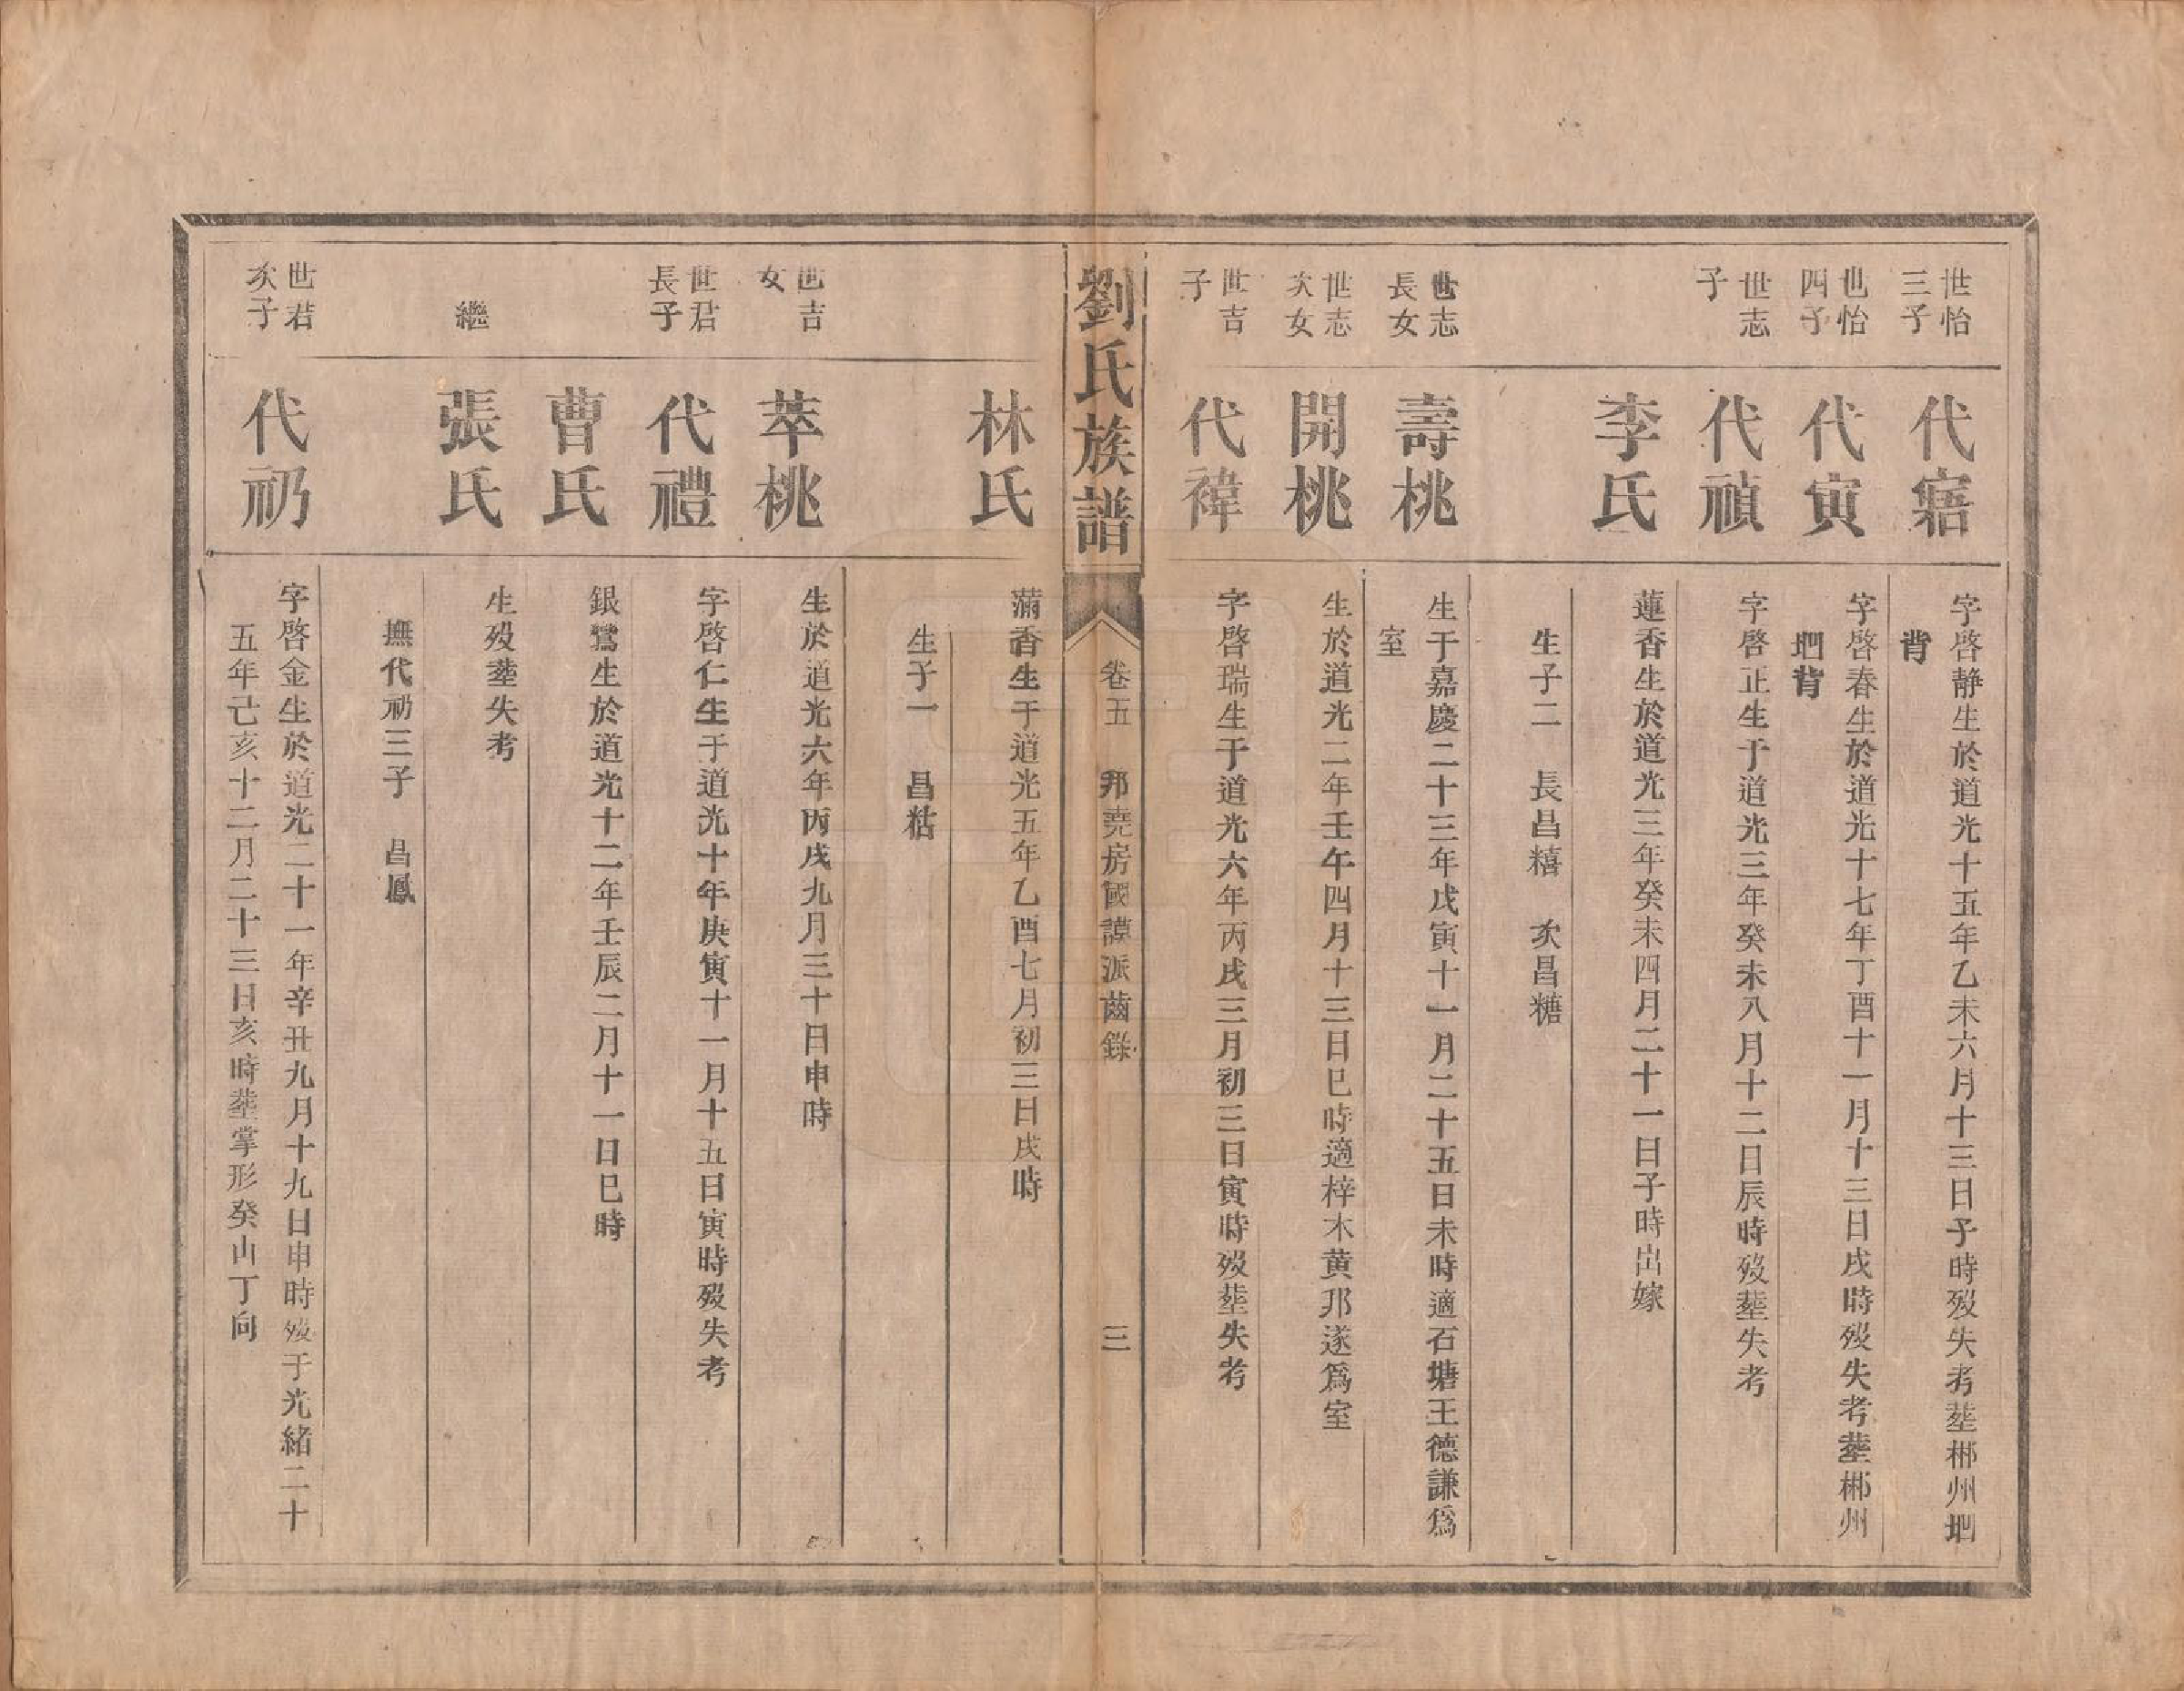 世怡
三子
代𡪢
字啓靜生於道光十五年乙未六月十三日子時歿失考塟郴州垇
背
世怡
四子
代寅
字啓春生於道光十七年丁酉十一月十三日戌時歿失考塟郴州
垇背
世志
子
代禎
字啓正生于道光三年癸未八月十二日辰時歿塟失考
李氏
蓮香生於道光三年癸未四月二十一日子時出嫁
生子二　長昌糦　次昌糖
世志
長女
壽桃
生于嘉慶二十三年戊寅十一月二十五日未時適石塘王德謙爲
室
世志
次女
開桃
生於道光二年壬午四月十三日巳時適梓木黄邦遂爲室
世吉
子
代禕
字啓瑞生于道光六年丙戌三月初三日寅時歿塟失考
劉氏族譜
卷五　邦堯房國謨派齒錄
三
林氏
滿香生于道光五年乙酉七月初三日戌時
生子一　昌䊀
世吉
女
萃桃
生於道光六年丙戌九月三十日申時
世君
長子
代禮
字啓仁生于道光十年庚寅十一月十五日寅時歿失考
曹氏
銀鸞生於道光十二年壬辰二月十一日巳時
繼
張氏
生歿塟失考
撫代礽三子　昌鳳
世君
次子
代礽
字啓金生於道光二十一年辛丑九月十九日申時歿于光緒二十
五年己亥十二月二十三日亥時塟掌形癸山丁向